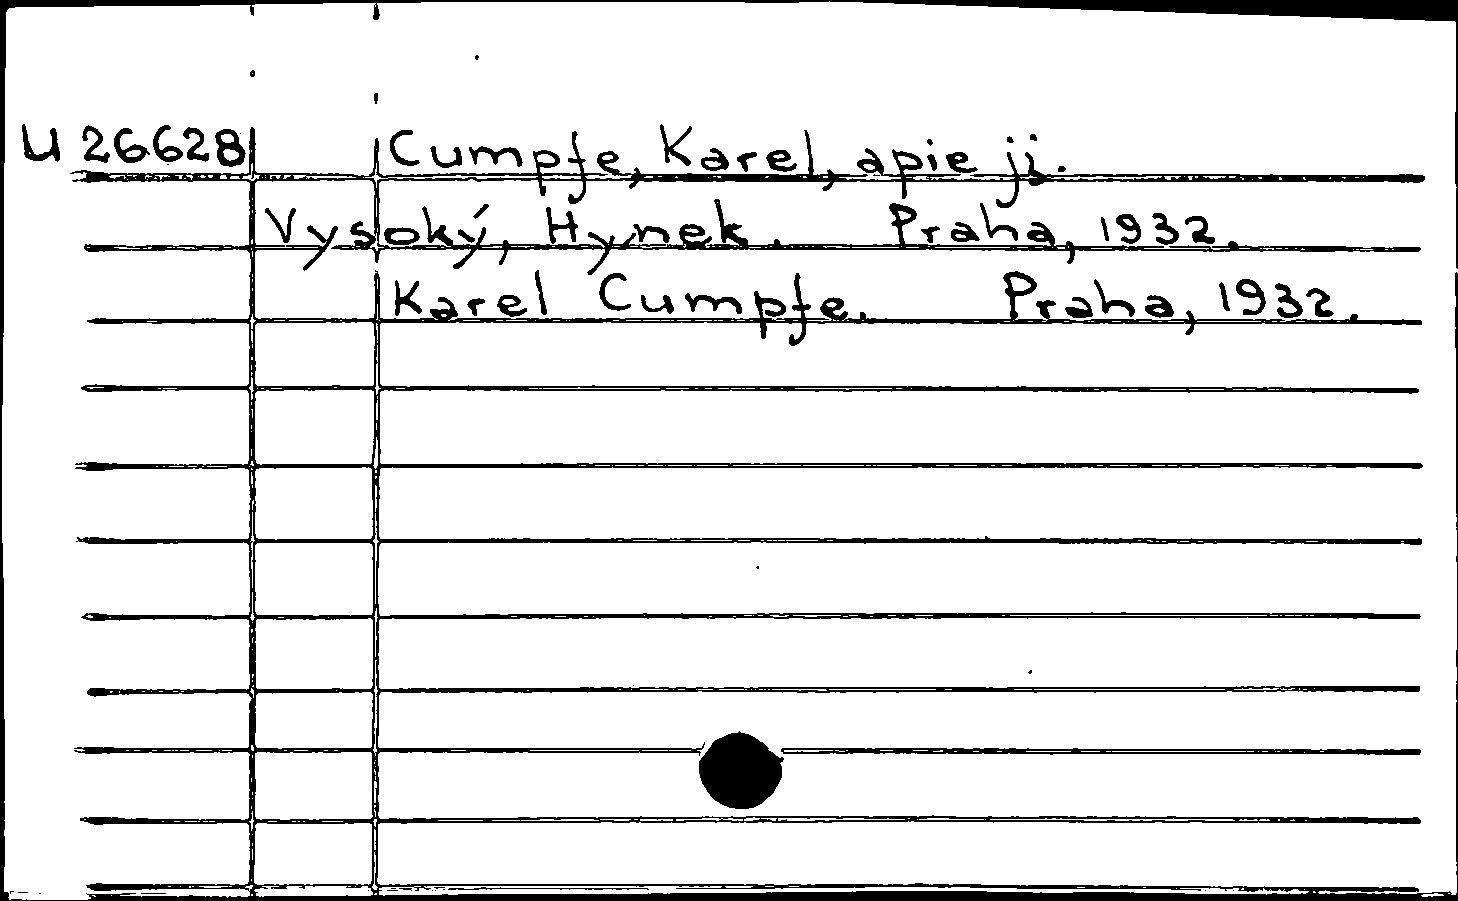 U 26628 Cumpfe, Karel, apie jį.
Vysoký, Hynek. Praha, 1932.
Karel Cumpfe. Praha, 1932.